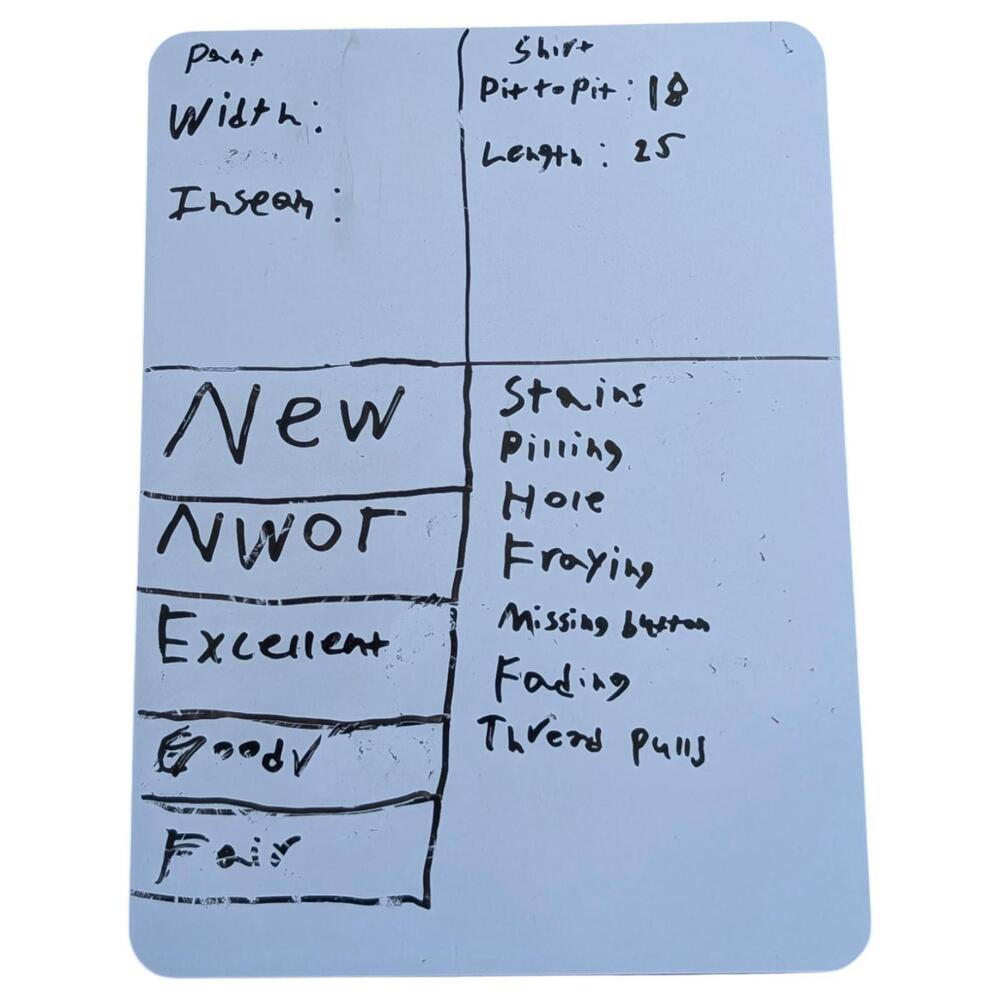 Pant
Width:
Inseam:
Shirt
Pit to Pit: 18
Length: 25
New
NWOT
Excellent
Good✓
Fair
Stains
Pilling
Hole
Fraying
Missing button
Fading
Thread pulls